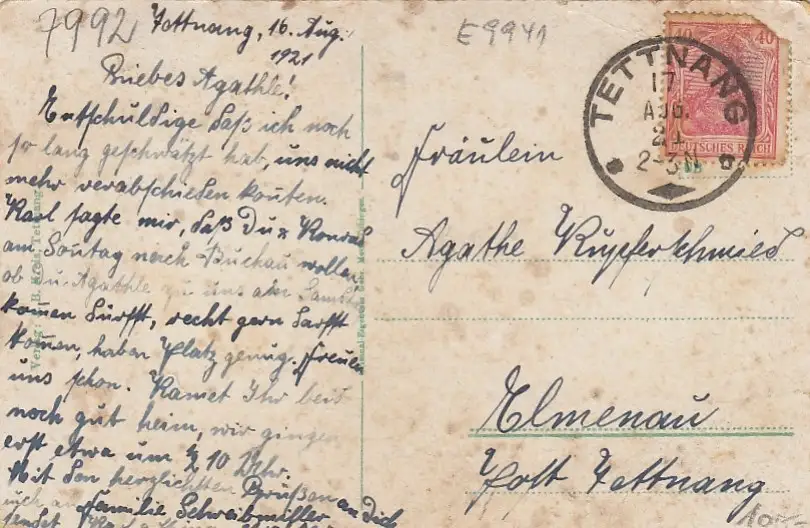 7992
Tettnang, 16. Aug.
1921
E9941
Liebes Agathle!
Entschuldige daß ich noch
so lang geschwätzt hab, uns nicht
mehr verabschieden konten.
Karl sagte mir, daß Du u Konrad
am Sontag nach Buchau wollen
ob Du Agathle zu uns am Samst
komen durfst, recht gern darfst
komen, haben Platz genug. Freuen
uns schon. Kamet Ihr beid
noch gut heim, wir gingen
erst etwa um ½ 10 Uhr.
Mit den herzlichsten Grüßen an Dich
Familie
Verlag: B. Tettnang
TETTNANG
17
AUG.
21
2-3N
40 40
DEUTSCHES REICH
Fräulein
Agathe Kupferschmied
Elmenau
Post Tettnang